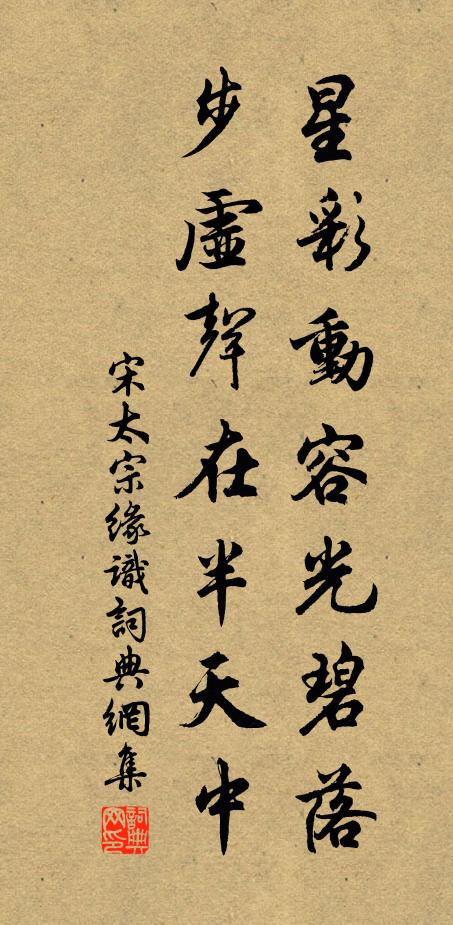 星彩動容光碧落
步虛聲在半天中
宋太宗緣識詞典網集
詞典網印